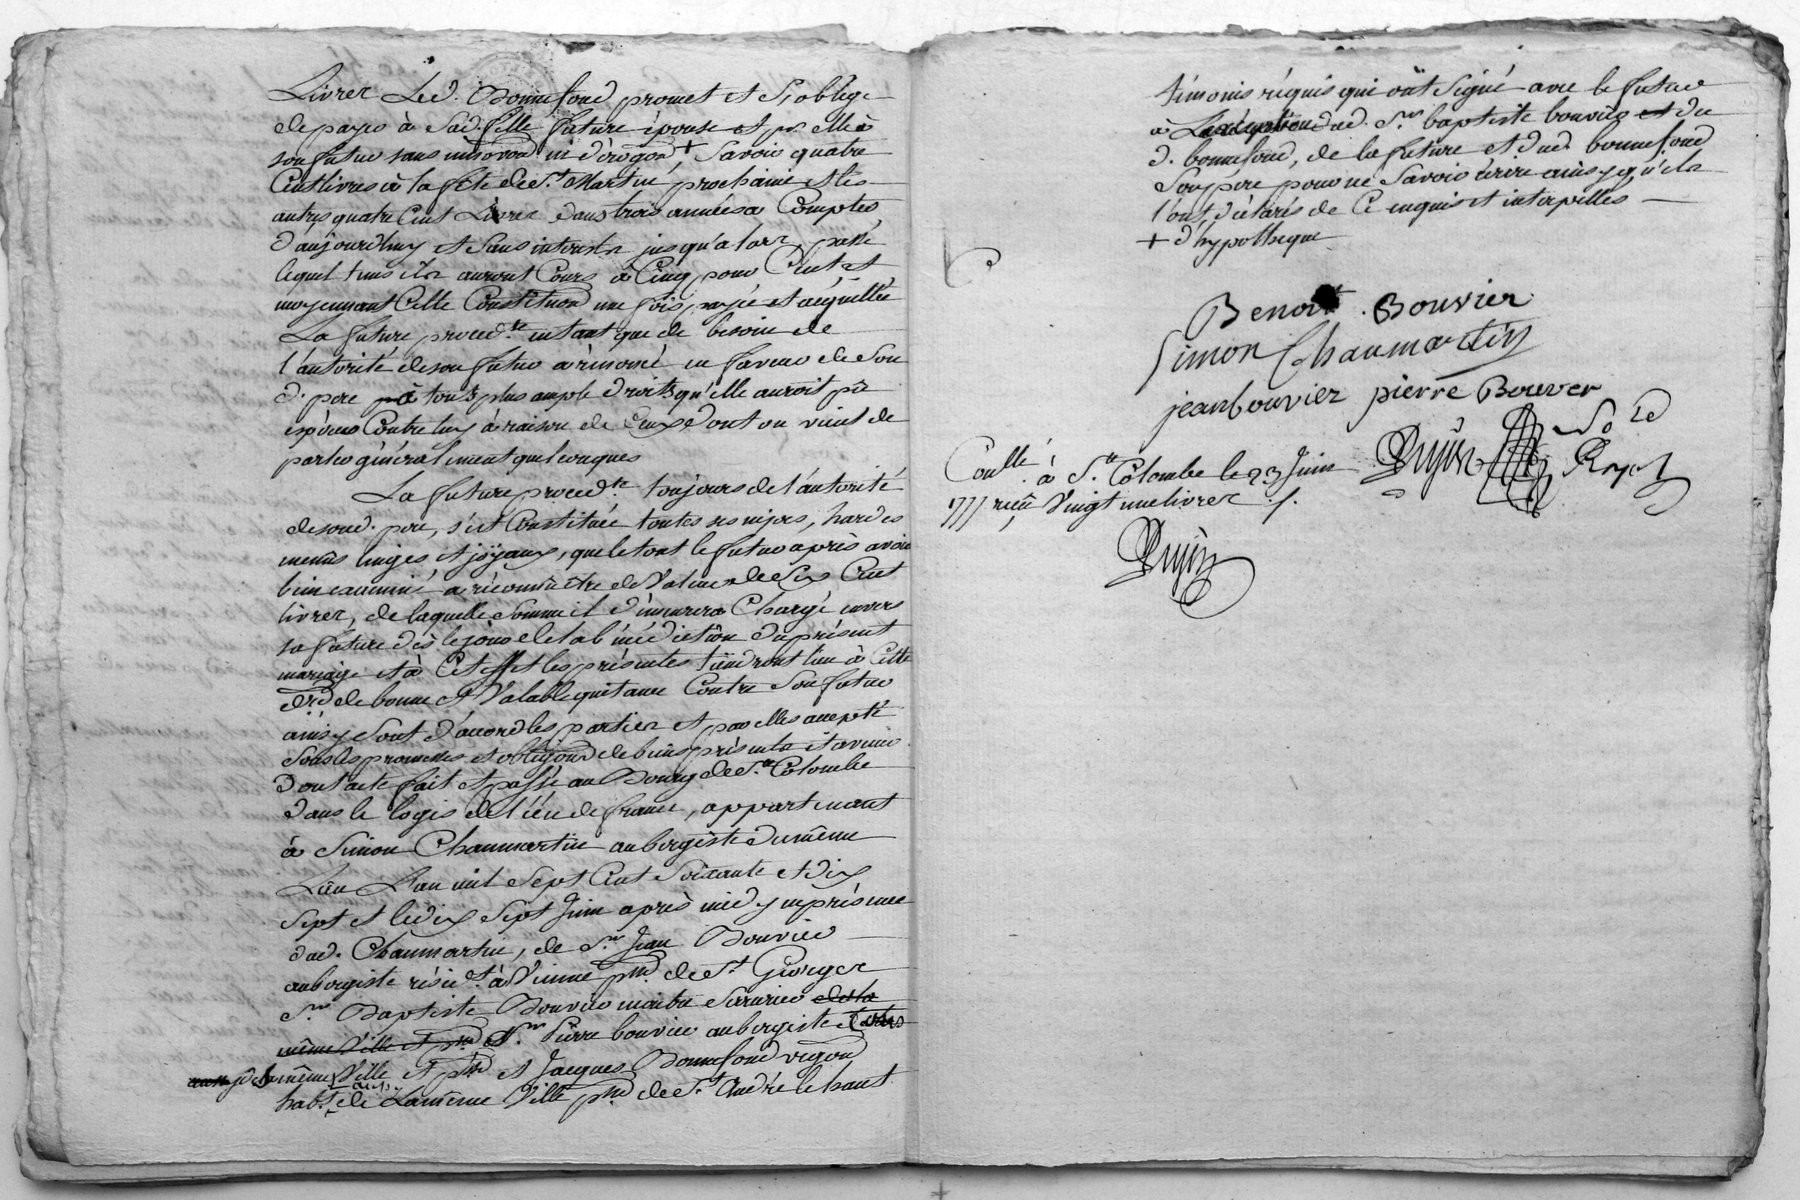 Livres Led. Bonnefond promet et s'oblige
de payer à sad. fille future épouse et pr elle à
son futur sans innovaon ni dérogaon +, savoir quatre
Cent livres à la fête de St. Martin prochaine et les
autres quatre Cent Livres dans trois années à Compter
d'aujourdhuy et sans interests jusqu'alors, passé
lequel tems ils auront Cours à Cinq pour Cent et
moyennant Cette Constitution une fois payée et acquittée
La future procedte. entant que de besoin de
l'autorité de son futur a renoncé en faveur de son
d. pere à touts plus ample droits qu'elle auroit pû
espérer Contre luy à raison de Ceux dont on vient de
parler généralement quelconques
La future procedte. toujours de l'autorité
de sond. pere, s'est Constituée toutes ses nipes, hardes
menus linges et joÿaux, que le tout le futur après avoir
bien examiné a réconnu être de Valeur de Six Cent
livres, de laquelle somme il demeurera Chargé envers
sa future dès le jour de la bénédiction du présent
mariage et à Cet effet les présentes tiendront lieu à Cette
dre. de bonne et Valable quitance Contre son futur
ainsy sont d'accord les parties et par elles accepté
sous les promesses et obligaons de biens présents et avenir
Dont acte fait et passé au Bourg de Ste. Colombe
dans le logis de l'écu de france, appartenant
à Simon Chaumartin aubergiste du même
Lieu L'an mil Sept Cent Soixante et dix
Sept et le dix Sept Juin après midy en présence
dud. Chaumartin, de Sr. Jean Bouvier
aubergiste résidt. à Vienne psse de St. Georges
Sr. Baptiste Bouvier maitre Serrurier de la
même Ville et psse Sr. Pierre bouvier aubergiste
de la même Ville et psse et Jacques Bonnefond vigon
habt. aussy de Lamême Ville psse de St. André le haut
témoins réquis qui ont signé avec le futur
à Lexception dud. Sr. baptiste bouvier et du
d. bonnefond, de la future et dud. bonnefond
son père pour ne savoir écrire ainsy qu'ils
l'ont déclarés de Ce enquis et interpellés
+ d'hypotheque
Benoit Bouvier
Simon Chaumartin
jean bouvier pierre Bouver
Coullé. à Ste. Colombe le 23 Juin
1777 reçu Vingt une livres s.